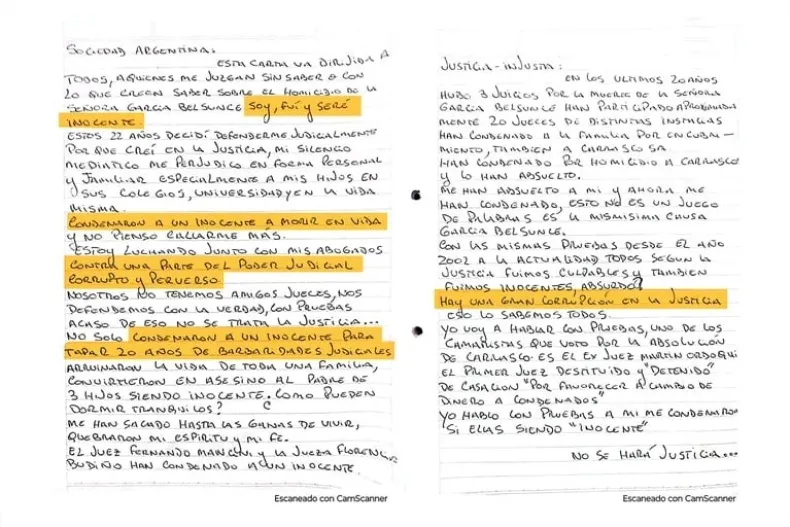 SOCIEDAD ARGENTINA:
ESTA CARTA VA DIRIJIDA A
TODOS, AQUIENES ME JUZGAN SIN SABER O CON
LO QUE CREEN SABER SOBRE EL HOMICIDIO DE LA
SEÑORA GARCIA BELSUNCE SOY, FUÍ Y SERÉ
INOCENTE
ESTOS 22 AÑOS DECIDÍ DEFENDERME JUDICIALMENTE
POR QUE CREÍ EN LA JUSTICIA, MI SILENCIO
MEDIATICO ME PERJUDICO EN FORMA PERSONAL
Y FAMILIAR ESPECIALMENTE A MIS HIJOS EN
SUS COLEGIOS, UNIVERSIDAD Y EN LA VIDA
MISMA.
CONDENARON A UN INOCENTE A MORIR EN VIDA
Y NO PIENSO CALLARME MÁS.
ESTOY LUCHANDO JUNTO CON MIS ABOGADOS
CONTRA UNA PARTE DEL PODER JUDICIAL
CORRUPTO Y PERVERSO
NOSOTROS NO TENEMOS AMIGOS JUECES, NOS
DEFENDEMOS CON LA VERDAD, CON PRUEBAS
ACASO DE ESO NO SE TRATA LA JUSTICIA...
NO SOLO CONDENARON A UN INOCENTE PARA
TAPAR 20 AÑOS DE BARBARIDADES JUDICIALES
ARRUINARON LA VIDA DE TODA UNA FAMILIA,
CONVIRTIERON EN ASESINO AL PADRE DE
3 HIJOS SIENDO INOCENTE. COMO PUEDEN
DORMIR TRANQUILOS?
ME HAN SACADO HASTA LAS GANAS DE VIVIR,
QUEBRARON MI ESPIRITU Y MI FE.
EL JUEZ FERNANDO MANCINI Y LA JUEZA FLORENCIA
BUDIÑO HAN CONDENADO A UN INOCENTE.
Escaneado con CamScanner
JUSTICIA - INJUSTA:
EN LOS ULTIMOS 20 AÑOS
HUBO 3 JUICIOS POR LA MUERTE DE LA SEÑORA
GARCIA BELSUNCE HAN PARTICIPADO APROXIMADA
MENTE 20 JUECES DE DISTINTAS INSTACIAS
HAN CONDENADO A LA FAMILIA POR ENCUBRI-
MIENTO, TAMBIEN A CARRASCOSA
HAN CONDENADO POR HOMICIDIO A CARRASCO
Y LO HAN ABSUELTO.
ME HAN ABSUELTO A MI Y AHORA ME
HAN CONDENADO, ESTO NO ES UN JUEGO
DE PALABRAS ES LA MISMISIMA CAUSA
GARCIA BELSUNCE.
CON LAS MISMAS PRUEBAS DESDE EL AÑO
2002 A LA ACTUALIDAD TODOS SEGUN LA
JUSTICIA FUIMOS CULPABLES Y TAMBIEN
FUIMOS INOCENTES, ABSURDO?
HAY UNA GRAN CORRUPCIÓN EN LA JUSTICIA
ESO LO SABEMOS TODOS.
YO VOY A HABLAR CON PRUEBAS, UNO DE LOS
CAMARISTAS QUE VOTO POR LA ABSOLUCION
DE CARRASCO ES EL EX JUEZ MARTIN ORDOQUI
EL PRIMER JUEZ DESTITUIDO Y "DETENIDO"
DE CASACION "POR FAVORECER A CAMBIO DE
DINERO A CONDENADOS"
YO HABLO CON PRUEBAS A MI ME CONDENARON
SI ELLAS SIENDO "INOCENTE"
NO SE HARÁ JUSTICIA...
Escaneado con CamScanner